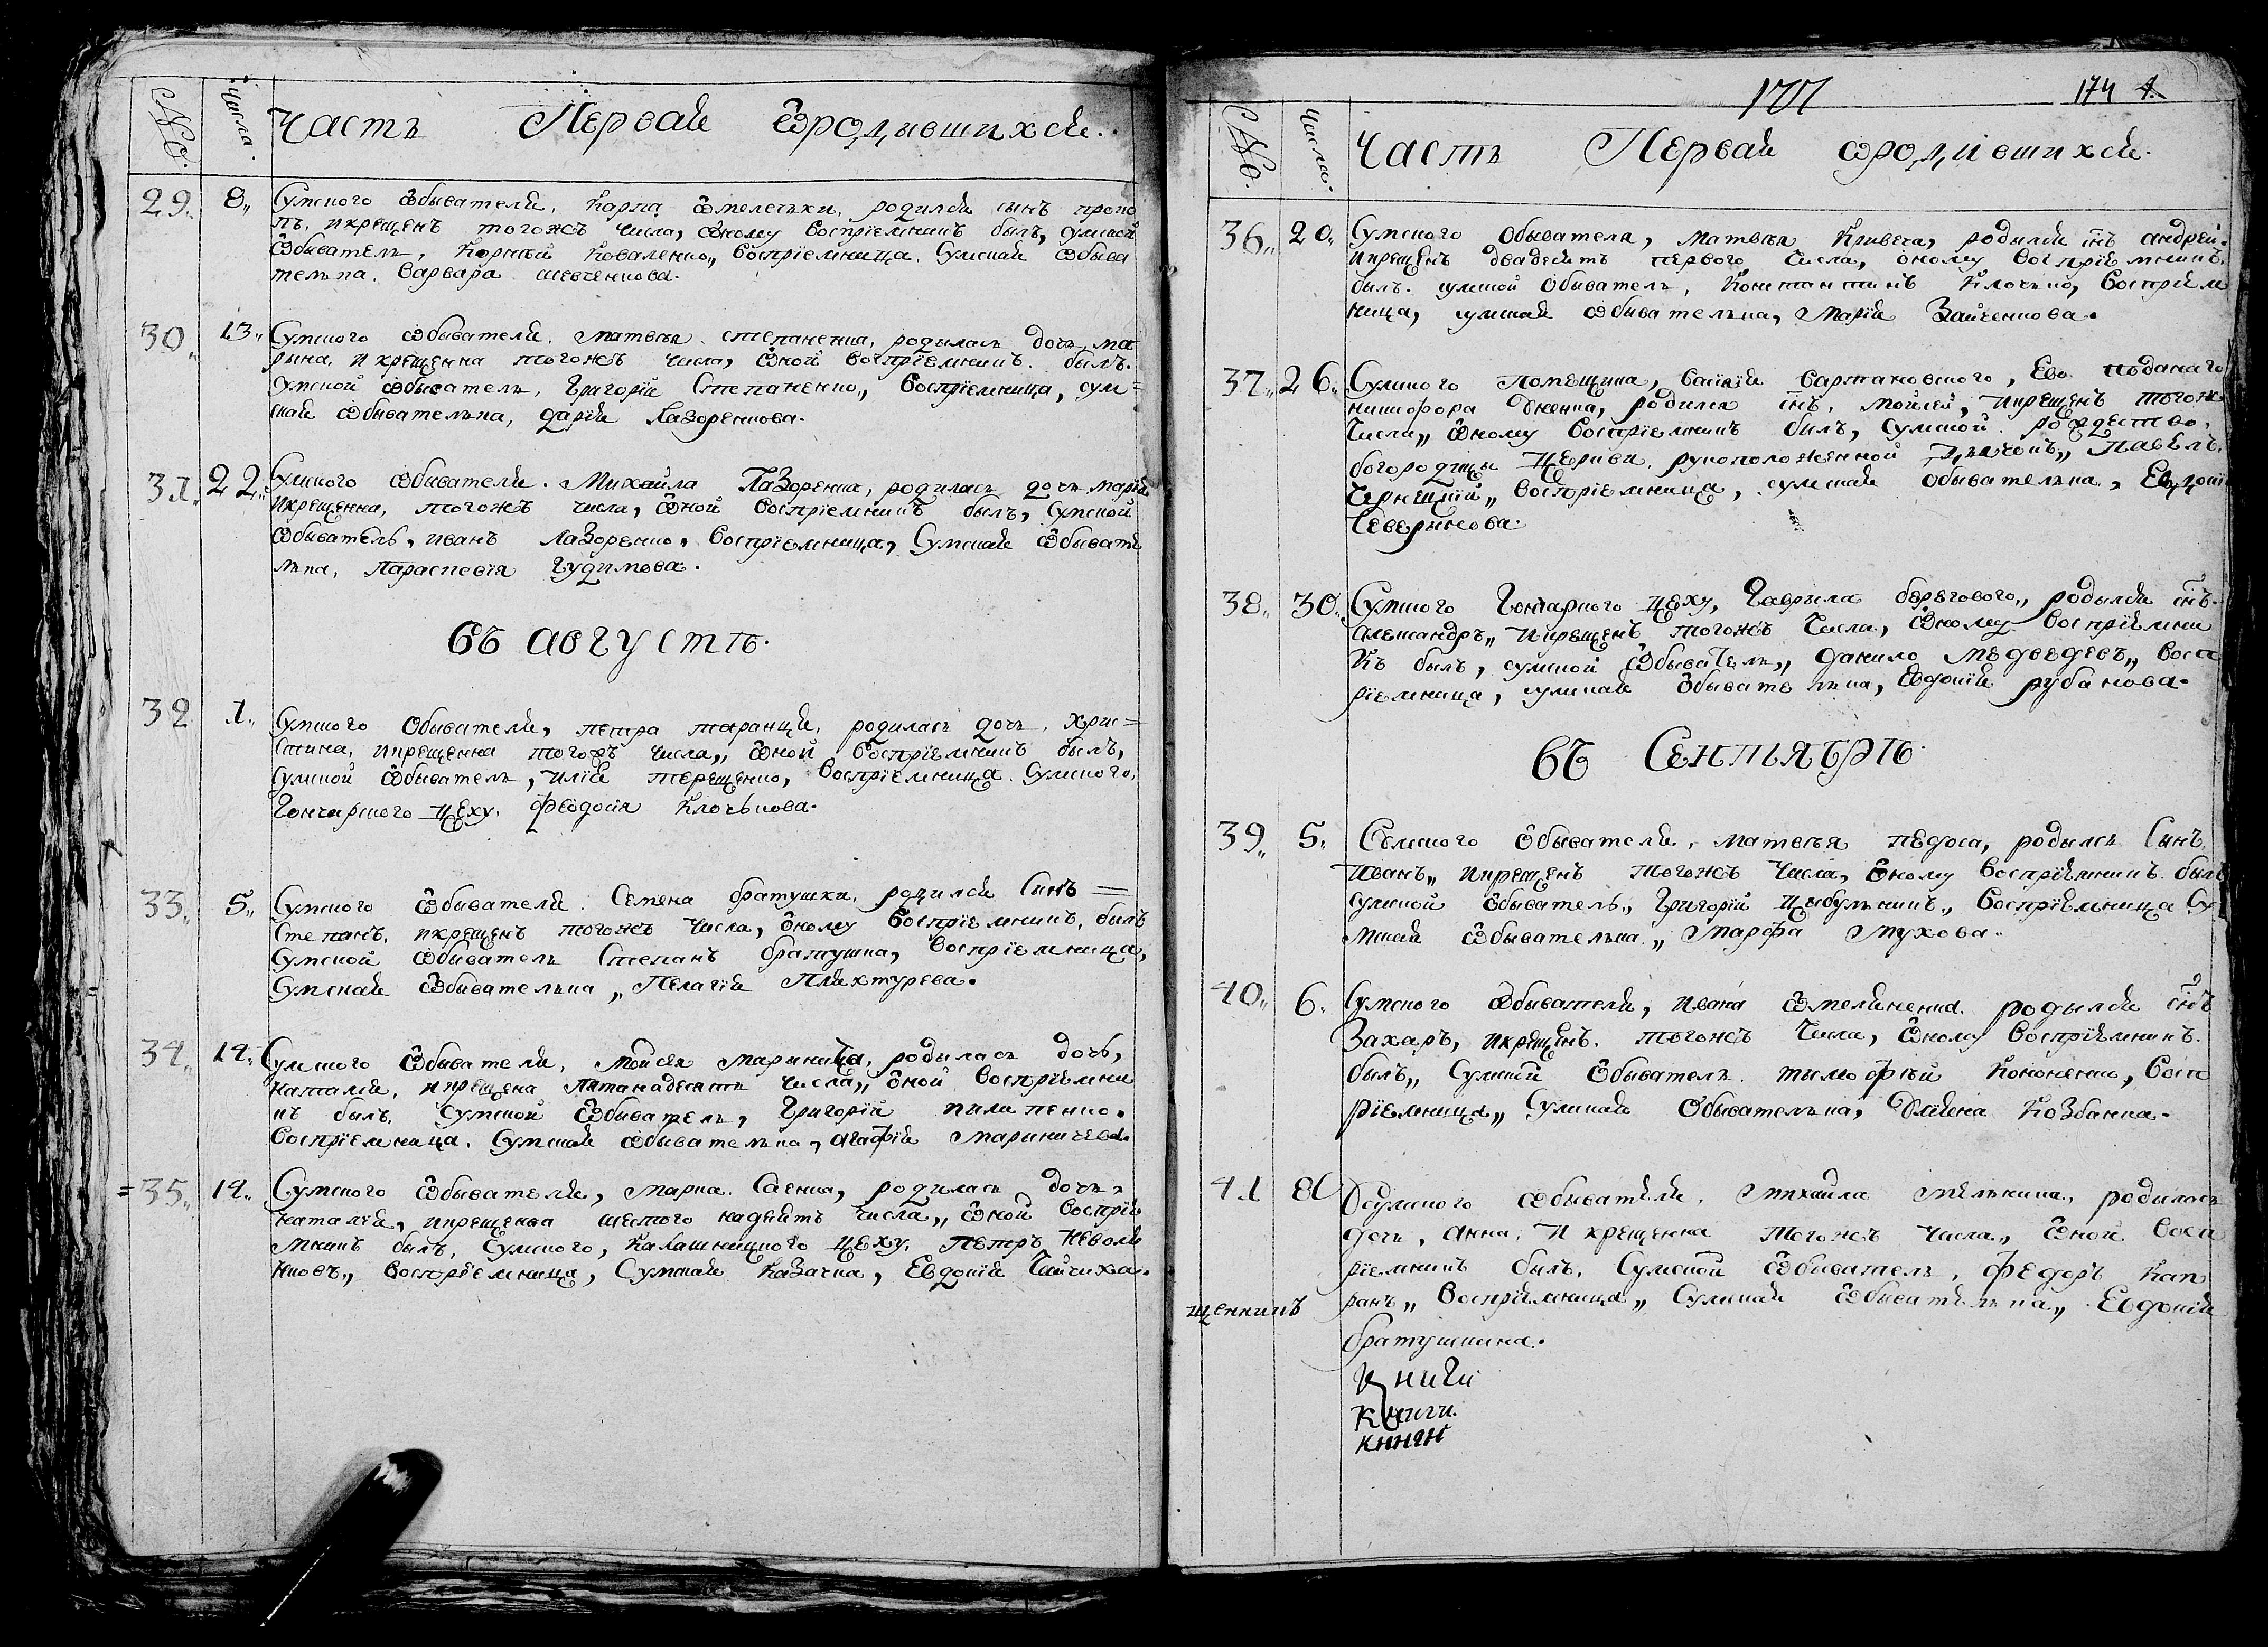 №
числа
Часть Первая ѿродившихся
29 8 Сумского ѡбывателя, Карпа ѿмелечьки, родился сынъ прокоп
ъ, икрещенъ тогожъ числа, ѿному воспріемникъ былъ, сумской
ѡбыватель, Корнѣй Коваленко, воспріемница, Сумская ѡбыва
телька, Варвара шевченкова.
30 13 Сумского ѡбывателя, матвѣя степаненка, родилась дочь ма
рина, икрещенна тогожъ числа, ѿной воспріемникъ былъ
сумской ѡбыватель, Григорій Степаненко, воспріемница, сум=
ская ѡбывателька, дарія Лазоренкова.
31 22 Сумского ѡбывателя, Михаила Лазоренка, родилась дочь марія
икрещенна, тогожъ числа, ѿной воспріемникъ былъ, Сумской
ѡбыватель, иванъ Лазоренко, воспріемница, Сумская ѡбывате
лька, Параскевія Гудимова.
въ августѣ.
32 1 Сумского обывателя, петра таранця, родилась дочь, хрис=
стина, икрещенна тогожъ числа, ѿной воспріемникъ былъ,
сумской ѡбыватель, илія терещенко, воспріемница Сумского,
Гончарского цеху, феодосія Клочькова.
33 5 Сумского ѡбывателя Семена братушки, родился Синъ =
Степанъ, икрещенъ тогожъ числа, ѿному воспріемникъ, былъ
Сумской ѡбыватель Степанъ братушка, воспріемница,
Сумская ѡбывателька, Пелагія Пляхтурева.
34 14 Сумского ѡбывателя, мойсея маринича, родилась дочь,
наталія, икрещена пятанадесять числа, ѿной воспріемни
къ былъ, Сумской ѡбыватель, Григорій пилипенко.
воспріемница, Сумская ѡбывателька, агафія мариничева.
35 14 Сумского ѡбывателя, марка Саенка, родилась дочь,
наталія, икрещенна шестого надесять числа, ѿной воспріе
мникъ былъ, Сумского, Калашницкого цеху, Петръ неволи
ковъ, воспріемница, Сумская Казачка, Евдокія Чайчиха.
174
№
числа
Часть Первая ѿродившихся
36 20 Сумского Обывателя, матвѣя Кривеча, родился снъ андрей
икрещенъ двадесять первого числа, оному воспріемникъ
былъ сумской Обыватель, Константинъ Клочько, воспріем
ница, сумская ѡбывателька, Марія Зайченкова.
37 26 Сумского помещика, Василія вартановского, Его поданаго
никифора Юненка, родился снъ, мойсей, икрещенъ тогожъ
числа, ѿному воспріемникъ билъ, Сумской рождество
богородицы Церкви, рукоположенной Дьячокъ, Павелъ
Чернецкій, воспріемница, сумская обывателька, Евдокія
Чеверикова.
38 30 Сумского Гончарного цеху, Гаврыла берегового, родылся снъ
александръ, икрещенъ тогожъ числа, ѿному воспріемни
къ былъ, сумской ѡбыватель, данило медведевъ, восп
ріемница, сумская ѡбывателька, Евдокія рубанова.
въ Сентябрѣ
39 5 Сумского ѡбывателя, матвея педоса, родылся Синъ
Иванъ, икрещенъ тогожъ числа, ѿному воспріемникъ былъ
сумской ѡбыватель, Григорій Цыбулькинъ, воспріемница Су
мская ѡбывателька, Марфа Мухова.
40 6 Сумского ѡбывателя, Ивана ѿмеляненка родылся снъ
Захаръ, икрещенъ тогожъ числа, ѿному воспріемникъ
былъ, Сумской ѡбыватель тимофѣй Кононенко, восп
ріемница, Сумская Обывателька, Козбанка.
41 8 Сумского ѡбывателя, Михаила мелькина, родилась
дочь, анна, И крещенна тогожъ числа, ѿной восп
ріемникъ былъ, Сумской ѡбыватель, Федоръ Кап
ранъ, воспріемница, Сумская ѡбывателька, Евдокія
щенникъ
братушкина.
книги
книги.
книги